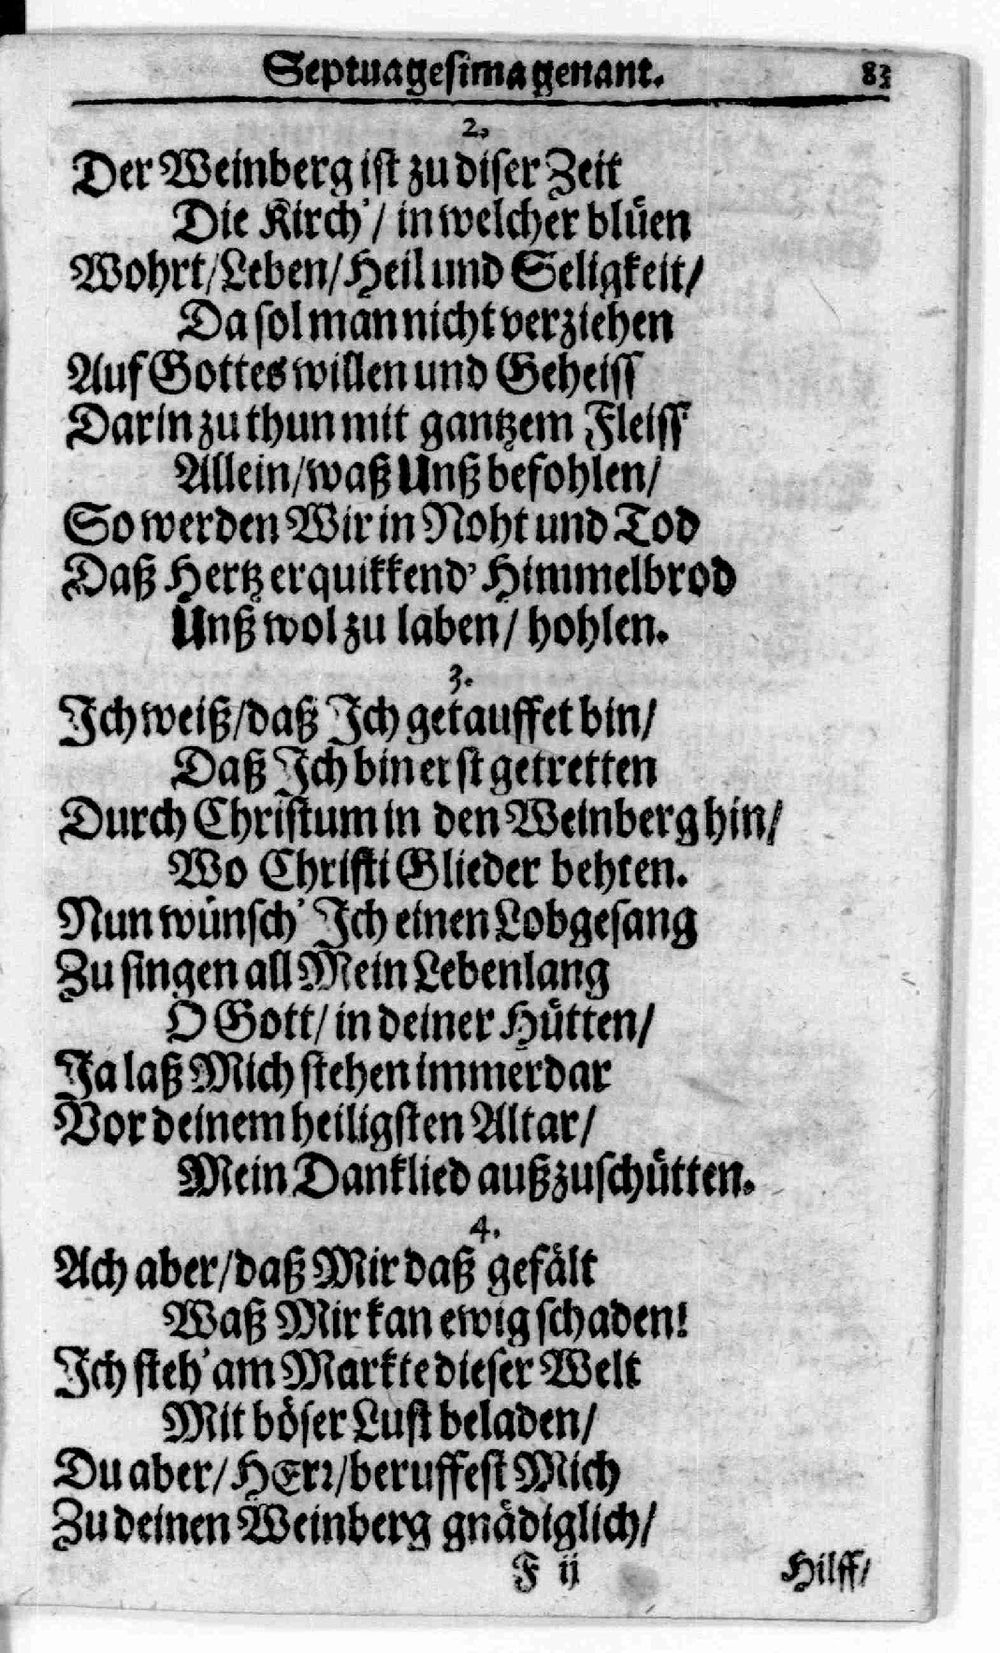 Septuagesima genant. 83
2.
Der Weinberg ist zu diser Zeit
Die Kirch'/ in welcher blüen
Wohrt/Leben/Heil und Seligkeit/
Da sol man nicht verziehen
Auf Gottes willen und Geheiss
Darin zu thun mit gantzem Fleiss
Allein/waß Unß befohlen/
So werden Wir in Noht und Tod
Daß Hertz erquikkend' Himmelbrod
Unß wol zu laben/ hohlen.
3.
Ich weiß/daß Ich getauffet bin/
Daß Ich bin erst getretten
Durch Christum in den Weinberg hin/
Wo Christi Glieder behten.
Nun wünsch' Ich einen Lobgesang
Zu singen all Mein Lebenlang
O Gott/ in deiner Hütten/
Ja laß Mich stehen immerdar
Vor deinem heiligsten Altar/
Mein Danklied außzuschütten.
4.
Ach aber/daß Mir daß gefält
Waß Mir kan ewig schaden!
Ich steh' am Markte dieser Welt
Mit böser Lust beladen/
Du aber/ HErr/beruffest Mich
Zu deinen Weinberg gnädiglich/
F ij Hilff/